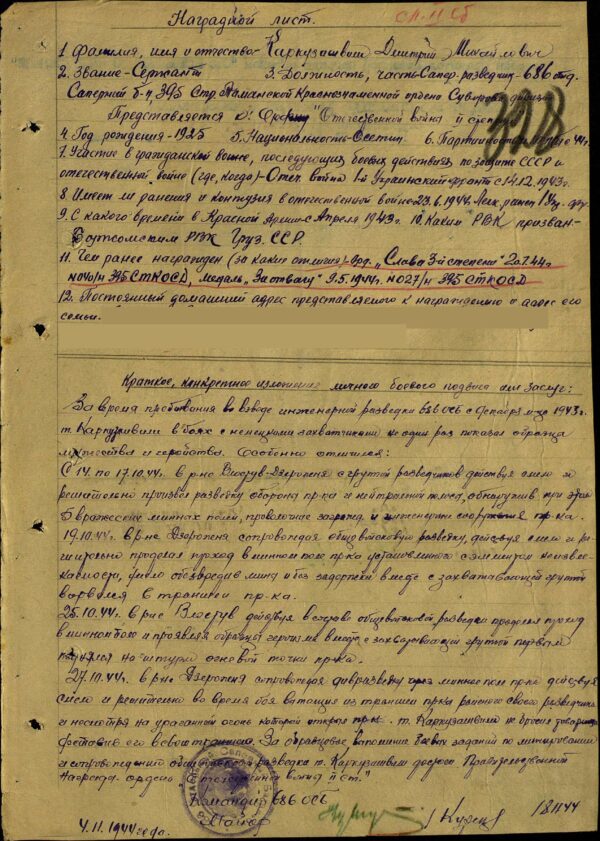 Наградной лист.
1 Фамилия, имя и отчество - Каркузашвили Дмитрий Михайлович
2. Звание - Сержант 3. Должность, часть - Сапер-разведчик - 686 отд.
Саперный б-н, 395 Стр. Таманской Краснознаменной ордена Суворова дивизии
Представляется к: Ордену "Отечественной войны II степени"
4. Год рождения - 1925 5. Национальность - Осетин. 6. Партийность
7. Участие в гражданской войне, последующих боевых действиях по защите СССР и
отечественной войне (где, когда) - Отеч. война 1й Украинский фронт с 14.12.1943г.
8 Имеет ли ранения и контузия в отечественной войне - 23.6.1944. Легк. ранен 1 Укр. фр.
9. С какого времени в Красной Армии - с Апреля 1943г. 10. Каким РВК призван -
Боржомским РВК Груз. ССР.
11. Чем ранее награжден (за какие отличия) - Орд. "Слава 3й степени"
395 СТКОСД, медаль "За отвагу" 9.5.1944г. №027/н 395 СТКОСД
12. Постоянный домашний адрес представляемого к награждению и адрес его
семьи.
Краткое, конкретное изложение личного боевого подвига или заслуг:
За время пребывания во взводе инженерной разведки 686 ОСБ с декабря м-ца 1943г.
т. Каркузашвили в боях с немецкими захватчиками не один раз показал образцы
мужества и геройства. Особенно отличился:
С 14 по 17.10.44г. в р-не с группой разведчиков действуя смело и
решительно произвел разведку обороны пр-ка и нейтральной полосы, обнаружив при этом
5 вражеских минных полей, проволочные загражд. и инженерные сооружения пр-ка.
19.10.44г. в р-не сопровождая общевойсковую разведку, действуя смело и ре-
шительно проделал проход в минном поле пр-ка установленного с элементом неизвле-
каемости, умело обезвредив мины и без задержки вместе с захватывающей группой
ворвался в траншеи пр-ка.
25.10.44г. в р-не действуя в составе общевойсковой разведки проделал проход
в минном поле и проявляя образцы героизма вместе с захватывающей группой первым
поднялся на штурм огневой точки пр-ка.
27.10.44г. в р-не сопровождая дивразведку через минное поле пр-ка действуя
смело и решительно во время боя вытащил из траншеи пр-ка раненого своего разведчика
и несмотря на ураганный огонь который открыл пр-к. т. Каркузашвили не бросил товарища
доставив его в свою траншею. За образцовое выполнение боевых заданий по минированию
и сопровождению общевойсковой разведки т. Каркузашвили достоин Правительственной
Награды - ордена "Отечественной войны II ст."
Командир 686 ОСБ
Майор
4.11.1944 года.